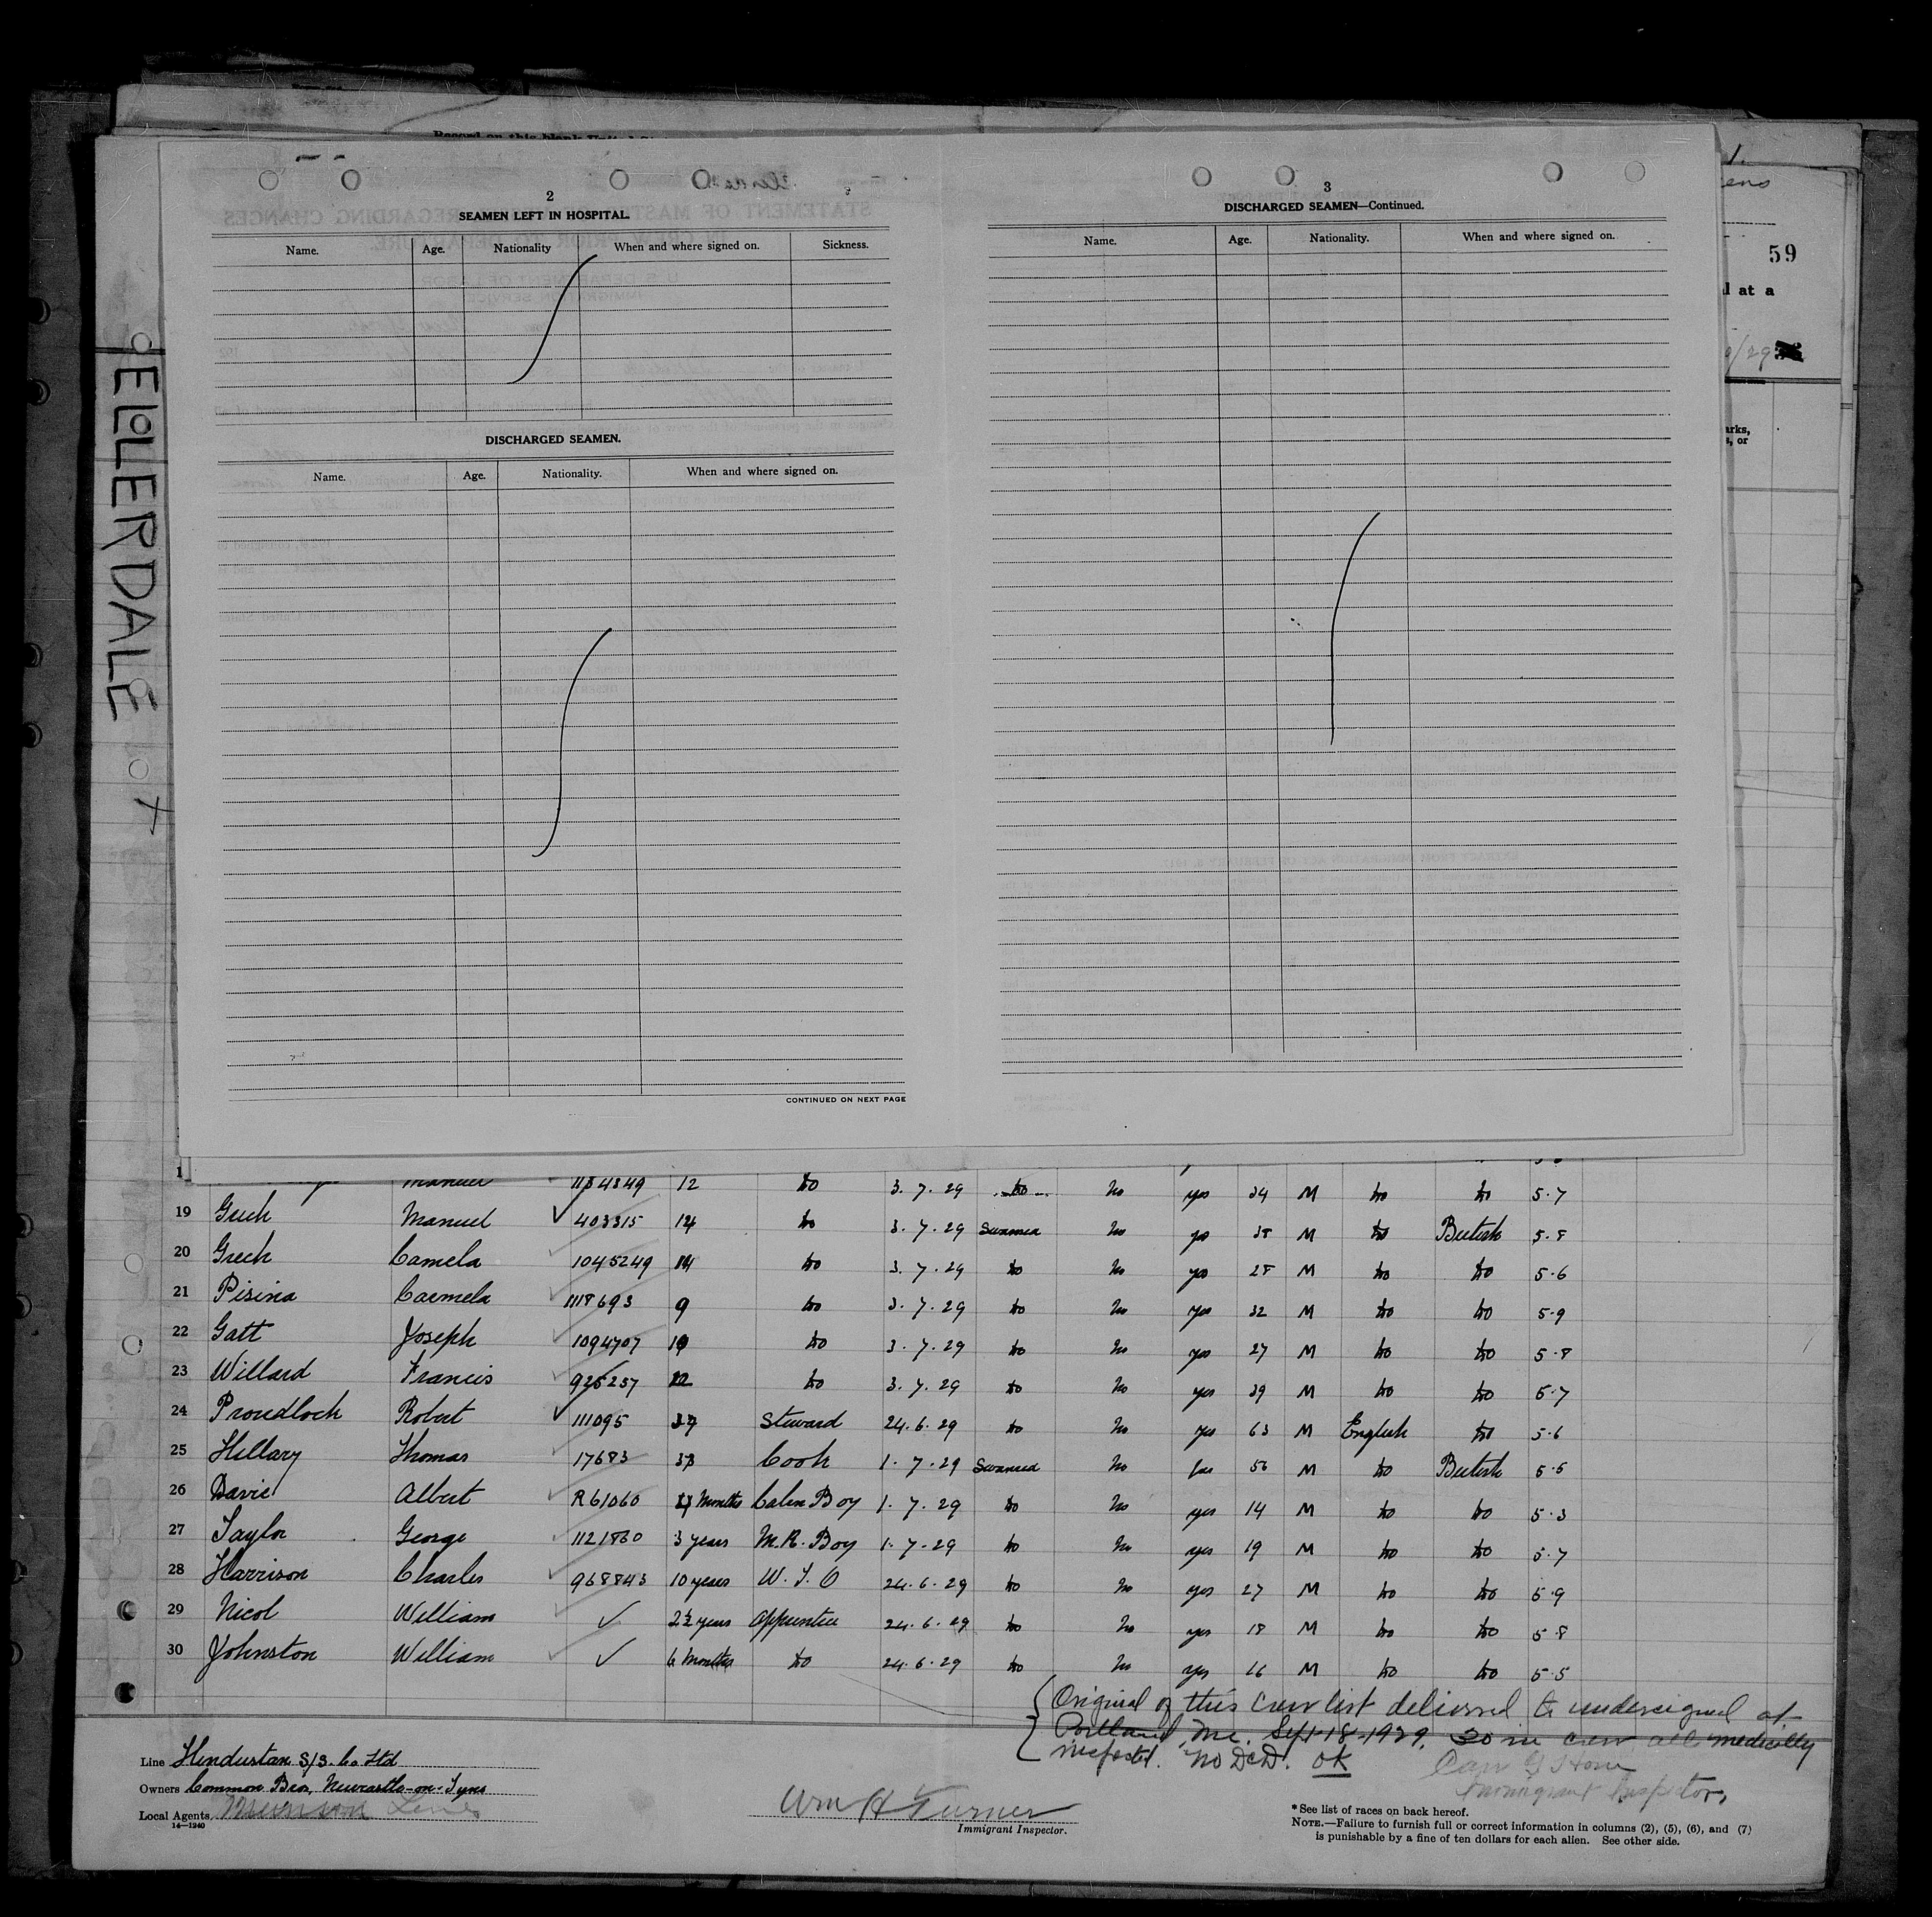 Record on this blank
1.
59
d at a
/29
arks,
s, or
ELLERDALE
2
SEAMEN LEFT IN HOSPITAL.
Name. Age. Nationality When and where signed on. Sickness.
DISCHARGED SEAMEN.
Name. Age. Nationality. When and where signed on.
CONTINUED ON NEXT PAGE
3
DISCHARGED SEAMEN—Continued.
Name. Age. Nationality. When and where signed on.
Manuel 1134349 12 do 3.7.29 do No yes 34 M do do 5.7
19 Grech Manuel 403315 14 do 3.7.29 Swansea No yes 38 M do British 5.8
20 Grech Camela 1045249 14 do 3.7.29 do No yes 28 M do do 5.6
21 Pisina Carmela 1118693 9 do 3.7.29 do No yes 32 M do do 5.9
22 Gatt Joseph 1094707 do 3.7.29 do No yes 27 M do do 5.8
23 Willard Francis 925257 do 3.7.29 do No yes 39 M do do 5.7
24 Proudlock Robert 111095 37 Steward 24.6.29 do No yes 63 M English do 5.6
25 Hillary Thomas 17683 Cook 1.7.29 Swansea No yes 56 M do British 5.5
26 Davie Albert R61060 Months Cabin Boy 1.7.29 do No yes 14 M do do 5.3
27 Taylor George 1121860 3 years M.R. Boy 1.7.29 do No yes 19 M do do 5.7
28 Harrison Charles 968843 10 years W.T.O 24.6.29 do No yes 27 M do do 5.9
29 Nicol William ✓ 2½ years Apprentice 24.6.29 do No yes 18 M do do 5.8
30 Johnston William ✓ 6 Months do 24.6.29 do No yes 16 M do do 5.5
Original of this crew list delivered to undersigned at
Portland, Me. Sept 18-1929. 30 in crew all medically
inspected. No D&D. OK
Immigrant Inspector,
Line Hindustan S/S. Co Ltd
Owners Common Bros, Newcastle-on-Tyne
Local Agents Munson Line
14—1240
Wm H Turner
Immigrant Inspector.
*See list of races on back hereof.
NOTE.—Failure to furnish full or correct information in columns (2), (5), (6), and (7)
is punishable by a fine of ten dollars for each alien. See other side.